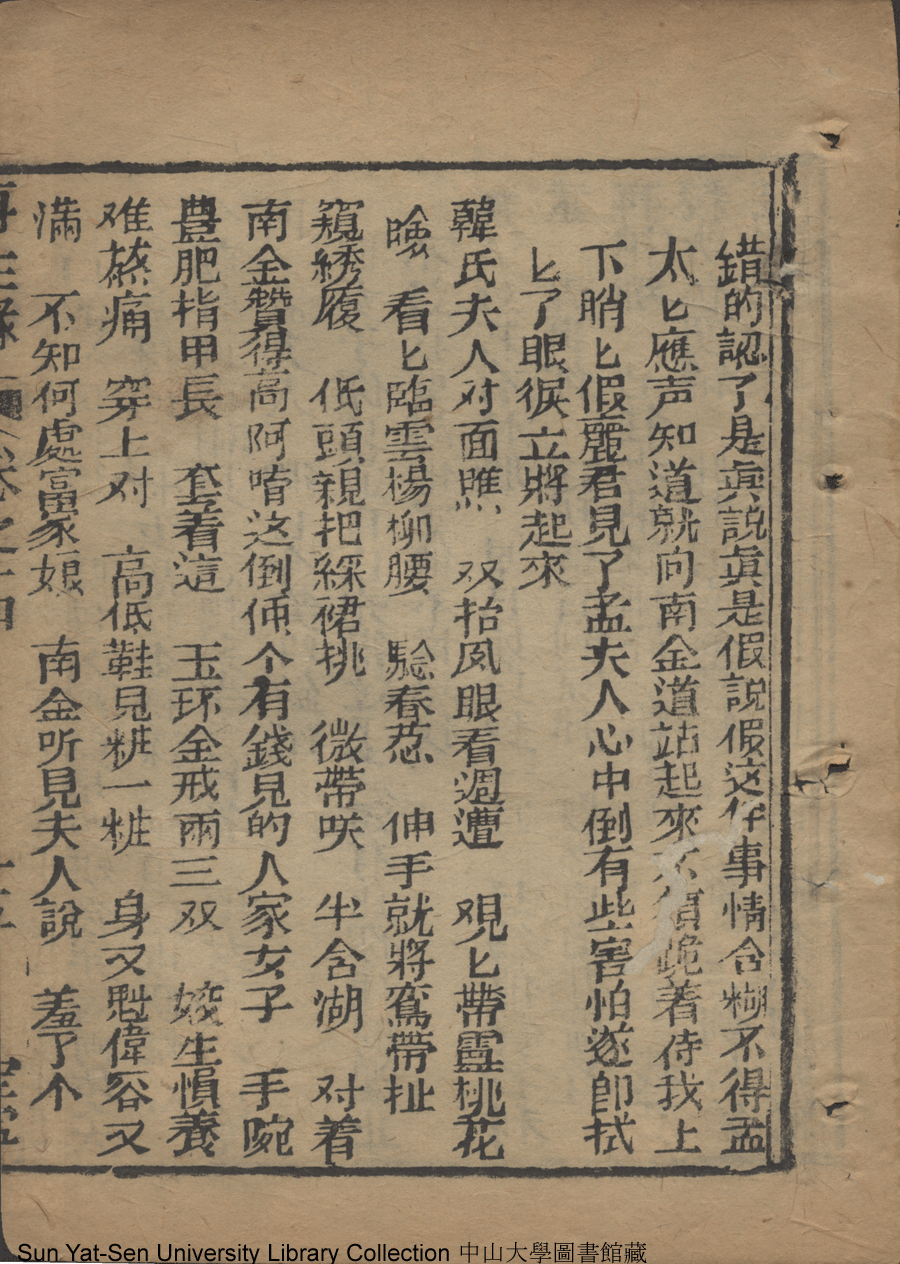 錯的認了是眞說眞是假說假这件事情含糊不得孟
太匕應声知道就向南金道站起來不須跪着待我上
下睄匕假麗君見了孟夫人心中倒有些害怕遂即拭
匕了眼淚立將起來
韓氏夫人对面瞧 双抬凤眼看週遭 覌匕帶靈桃花
臉 看匕臨雲楊柳腰 騐春葱 伸手就將鸞帶扯
窺綉履 低頭親把綵裙挑 微帶咲 半含湖 对着
南金贊得高阿唷这倒俩个有錢見的人家女子 手腕
豊肥指甲長 套着這 玉环金戒兩三双 姣生慣養
难蒸痛 穿上对 高低鞋見粧一粧 身又魁偉容又
滿 不知何處富家娘 南金听見夫人說 羞了个
再生縁 卷之十四
Sun Yat-Sen University Library Collection 中山大學圖書館藏